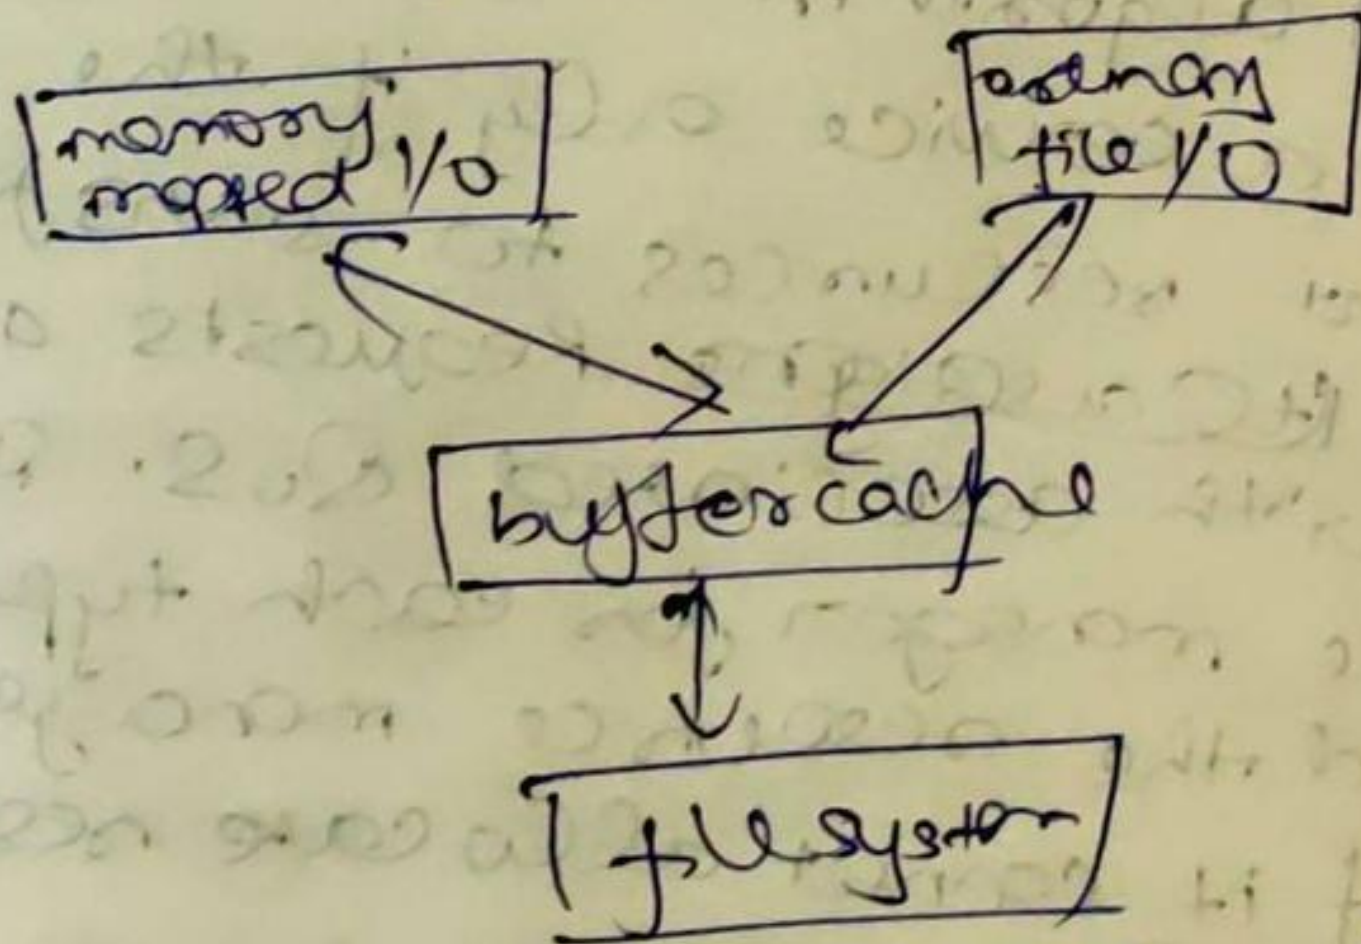 memory
mapped I/O
ordinary
file I/O
buffer cache
file system